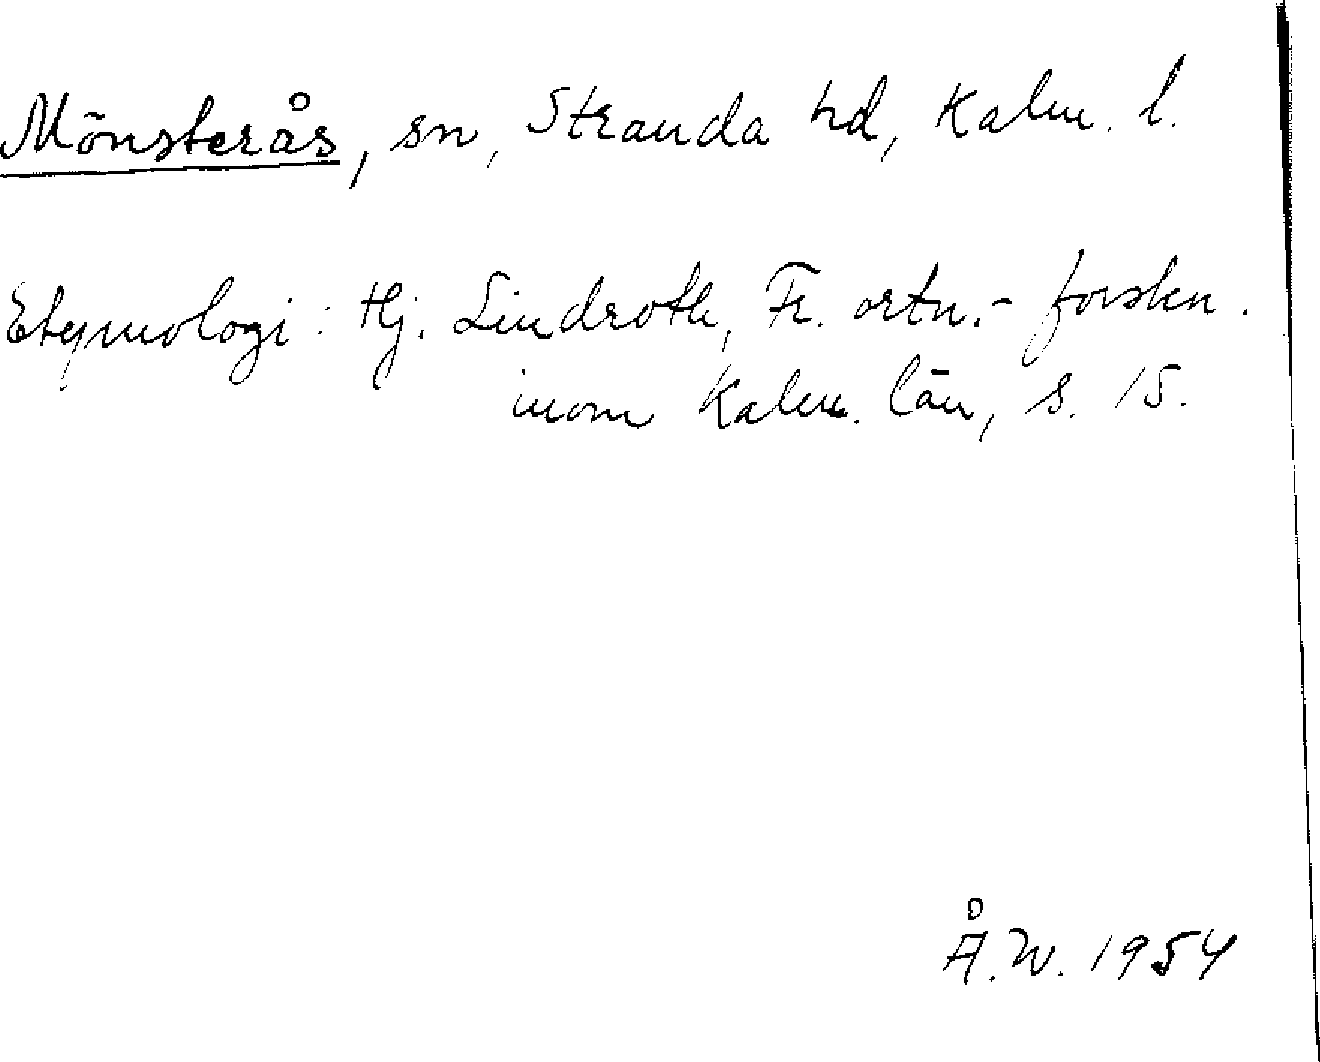 Mönsterås, sn, Stranda hd, Kalm. l.
Etymologi: Hj. Lindroth, Fr. ortn.- forskn.
inom Kalm. län, s. 15.
Å.W. 1954